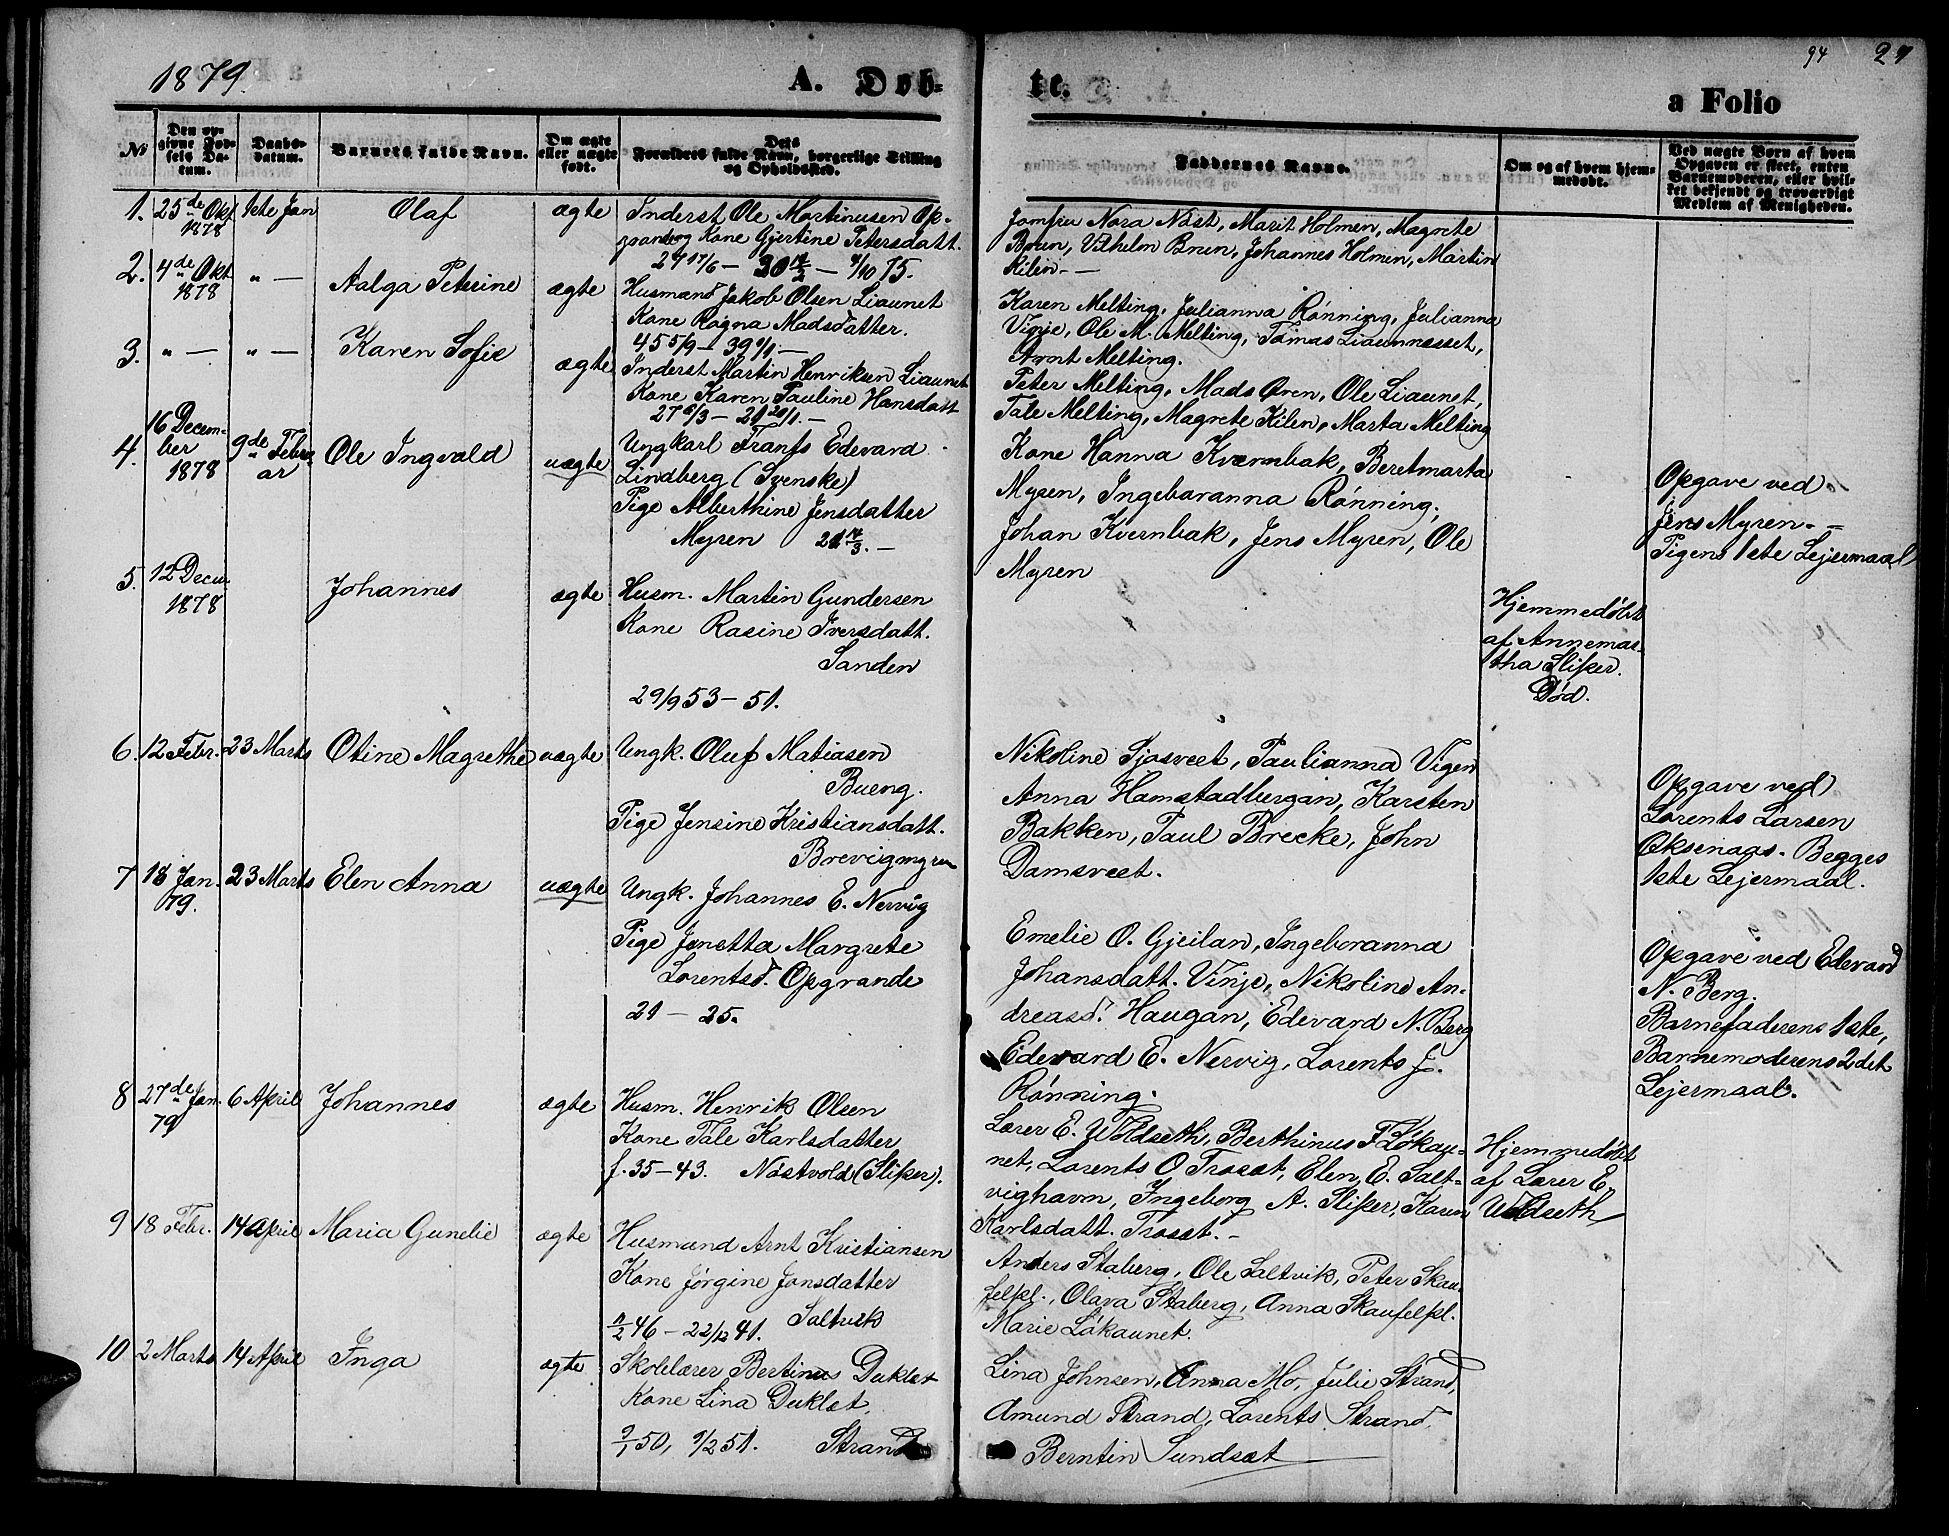 1879.
A. Døb-
te.
a Folio
94
No
Den op-
givne Fød-
sels Da-
tum.
Daabs-
datum.
Barnets fulde Navn.
Om ægte
eller uægte
født.
Dets
Forældres fulde Navn, borgerlige Stilling
og Opholdssted.
Faddernes Navne.
Om og af hvem hjem-
medøbt.
Ved uægte Børn af hvem
Opgaven er skeet, enten
Barnemoderen, eller hvil-
ket bekjendt og troværdigt
Medlem af Menigheden.
1. 25de Okt
1878
1ste Jan
Olaf
ægte
Inderst Ole Martinusen Op-
Kone Gjertine Petersdatt.
Jomfru Nora Nøst, Marit Holmen, Magrete
Brun, Vilhelm Brun, Johannes Holmen, Martin
Kilen. —
2. 4de Okt
1878
" —
Aalga Peterine
ægte
Husmand Jakob Olsen Liaunet
Kone Ragna Madsdatter.
45 5/9 - 39 9/1 —
Karen Melting, Julianna Rønning, Julianna
Vinje, Ole M. Melting, Tomas Liaunnesset,
Arnt Melting.
3. " — " —
Karen Sofie
ægte
Inderst Martin Henriksen Liaunet
Kone Karen Pauline Hansdatt
Peter Melting, Mads Øren, Ole Liaunet,
Tale Melting, Magrete Kilen, Marta Melting
4. 16 Decem-
ber
1878
9de Febru
ar
Ole Ingvald
uægte
Ungkarl Frants Edevard
Lindberg (Svenske)
Pige Alberthine Jensdatter
Myren
Kone Hanna Kvernbak, Beretmarta
Myren, Ingebaranna Rønning,
Johan Kvernbak, Jens Myren, Ole
Myren
Opgave ved
Jens Myren. —
Pigens 1ste Lejermaal
5. 12 Decem.
1878
Johannes
ægte
Husm. Martin Gundersen
Kone Rasine Iversdatt.
Sanden
29/9 53 - 51.
Hjemmedøbt
af Annemar-
tha Slipser.
Død.
6. 12 Febr. 23 Marts Otine Magrethe uægte
Ungk. Oluf Matiasen
Bueng.
Pige Jensine Kristiansdatt.
Brevigmyren
Nikoline Sjosveet, Paulianna Vigen
Anna Hamstadbergan, Karsten
Bakken, Paul Brecke, John
Damsveet.
Opgave ved
Lorents Larsen
Oksenaas. Begges
1ste Lejermaal.
7 18 Jan.
79.
23 Marts Elen Anna
uægte
Ungk. Johannes E. Nervig
Pige Jonetta Margrete
Lorentsd. Opgrande
21 — 25.
Emelie O. Gjeilan, Ingeboranna
Johansdatt. Vinje, Nikoline An-
dreasd. Haugan, Edevard N. Berg
Edevard E. Nervig, Lorents J.
Rønning.
Opgave ved Edevard
N. Berg.
Barnefaderens 1ste,
Barnemoderens 2det
Lejermaal.
8 27de Jan.
79
6 April Johannes
ægte
Husm. Henrik Olsen
Kone Tale Karlsdatter
f. 35 - 43. Nøstvold (Slipser).
Lærer E. Woldseth, Berthinus F. Løkau-
net, Lorents O Trosæt, Elen E. Salt-
vighavn, Ingeborg A. Slipser, Karen
Karlsdatt. Trosæt. —
Hjemmedøbt
af Lærer E.
Woldseth
9 18 Febr. 14 April Maria Gunelie
ægte
Husmand Arnt Kristiansen
Kone Jørgine Jonsdatter
46 - 22/12 41. Saltvik
Anders Staberg, Ole Saltvik, Peter Skau-
felspl., Olava Staberg, Anna Skaufelspl.
Marie Løkaunet.
10 2 Marts 14 April Inga
ægte
Skolelærer Bertinus Duklæt
Kone Lina Duklæt.
9/1 50, 9/2 51. Strand
Lina Johnsen, Anna Mo, Julie Strand,
Amund Strand, Lorents Strand.
Berntin Sundsæt